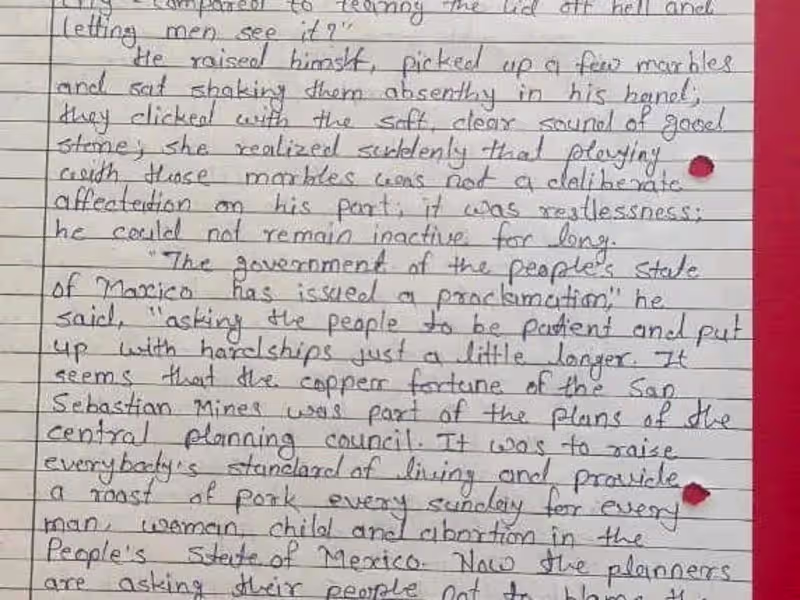 compared to tearing the lid off hell and
letting men see it?"
He raised himself, picked up a few marbles
and sat shaking them absently in his hand;
they clicked with the soft, clear sound of good
stone; she realized suddenly that playing
with those marbles was not a deliberate
affectation on his part; it was restlessness;
he could not remain inactive for long.
"The government of the people's state
of Maxico has issued a proclamation," he
said, "asking the people to be patient and put
up with hardships just a little longer. It
seems that the copper fortune of the San
Sebastian Mines was part of the plans of the
central planning council. It was to raise
everybody's standard of living and provide
a roast of pork every sunday for every
man, woman, child and abortion in the
People's State of Mexico. Now the planners
are asking their people not to blame the